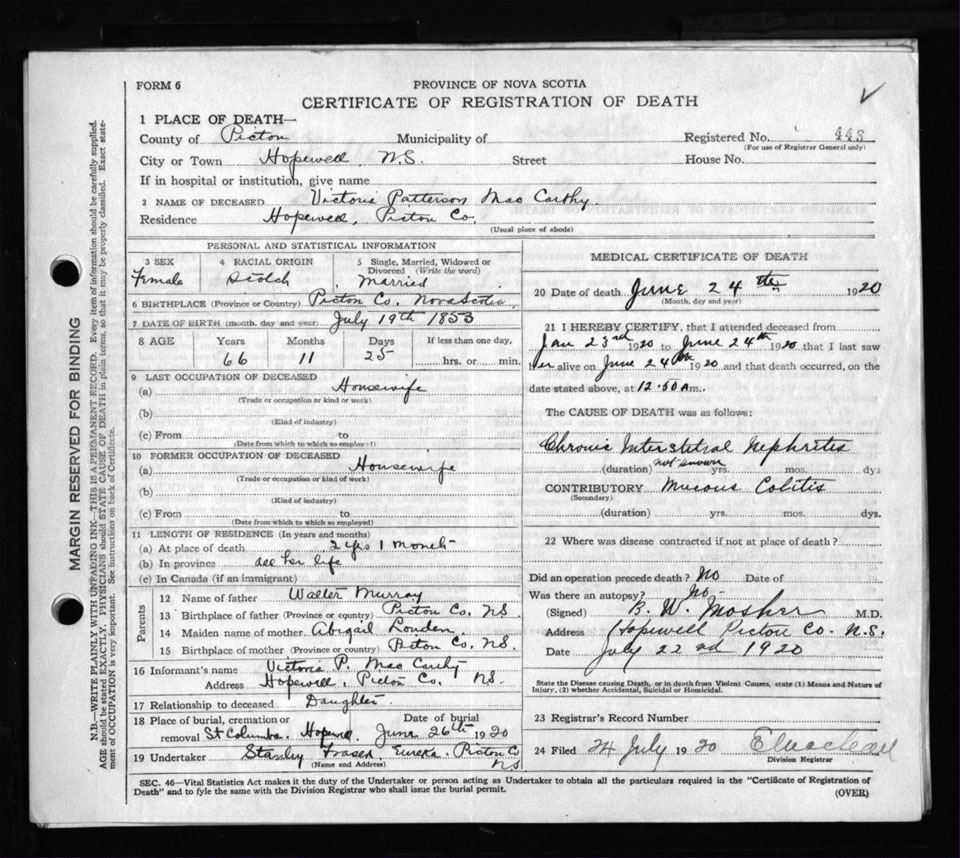 FORM 6
PROVINCE OF NOVA SCOTIA
CERTIFICATE OF REGISTRATION OF DEATH
1 PLACE OF DEATH—
County of Picton Municipality of Registered No. 448
(For use of Registrar General only)
City or Town Hopewell, N.S. Street House No.
If in hospital or institution, give name
2 NAME OF DECEASED Victoria Patterson Mac Carthy.
Residence Hopewell, Picton Co.
(Usual place of abode)
PERSONAL AND STATISTICAL INFORMATION
3 SEX 4 RACIAL ORIGIN 5 Single, Married, Widowed or
Divorced (Write the word)
Female Scotch Married
6 BIRTHPLACE (Province or Country) Picton Co. Nova Scotia
7 DATE OF BIRTH (month, day and year) July 19th 1853
8 AGE Years Months Days If less than one day,
66 11 25 hrs. or min.
9 LAST OCCUPATION OF DECEASED
(a) Housewife
(Trade or occupation or kind or work)
(b)
(Kind of industry)
(c) From to
(Date from which to which so employed)
10 FORMER OCCUPATION OF DECEASED
(a) Housewife
(Trade or occupation or kind of work)
(b)
(Kind of industry)
(c) From to
(Date from which to which so employed)
11 LENGTH OF RESIDENCE (In years and months)
(a) At place of death 2 yrs 1 month
(b) In province all her life
(c) In Canada (if an immigrant)
Parents
12 Name of father Walter Murray
13 Birthplace of father (Province or country) Picton Co, NS.
14 Maiden name of mother Abigail Louden
15 Birthplace of mother (Province or country) Picton Co, NS.
16 Informant's name Victoria P. Mac Carthy
Address Hopewell, Picton Co. N.S.
17 Relationship to deceased Daughter
18 Place of burial, cremation or Date of burial
removal St Columba, Hopewell, June 26th 1920
19 Undertaker Stanley Fraser Eureka, Picton Co
(Name and Address) NS
MEDICAL CERTIFICATE OF DEATH
20 Date of death June 24th 1920
(Month, day and year)
21 I HEREBY CERTIFY, that I attended deceased from
Jan 23rd 1920 to June 24th 1920 that I last saw
her alive on June 24th 1920 and that death occurred, on the
date stated above, at 12.50 a m.
The CAUSE OF DEATH was as follows:
Chronic Interstitial Nephritis
(duration) not known yrs. mos. dys
CONTRIBUTORY Mucous Colitis
(Secondary)
(duration) yrs. mos. dys.
22 Where was disease contracted if not at place of death?
Did an operation precede death? No Date of
Was there an autopsy? No.
(Signed) B. W. Mosher M.D.
Address Hopewell Picton Co. N.S.
Date July 22nd 1920
State the Disease causing Death, or in death from Violent Causes, state (1) Means and Nature of
Injury, (2) whether Accidental, Suicidal or Homicidal.
23 Registrar's Record Number
24 Filed 24 July 1920
Division Registrar
SEC. 46—Vital Statistics Act makes it the duty of the Undertaker or person acting as Undertaker to obtain all the particulars required in the "Certificate of Registration of
Death" and to fyle the same with the Division Registrar who shall issue the burial permit.
(OVER)
MARGIN RESERVED FOR BINDING
N.B.—WRITE PLAINLY WITH UNFADING INK—THIS IS A PERMANENT RECORD. Every item of information should be carefully supplied.
AGE should be stated EXACTLY. PHYSICIANS should STATE CAUSE OF DEATH in plain terms, so that it may be properly classified. Exact state-
ment of OCCUPATION is very important. See instructions on back of Certificate.